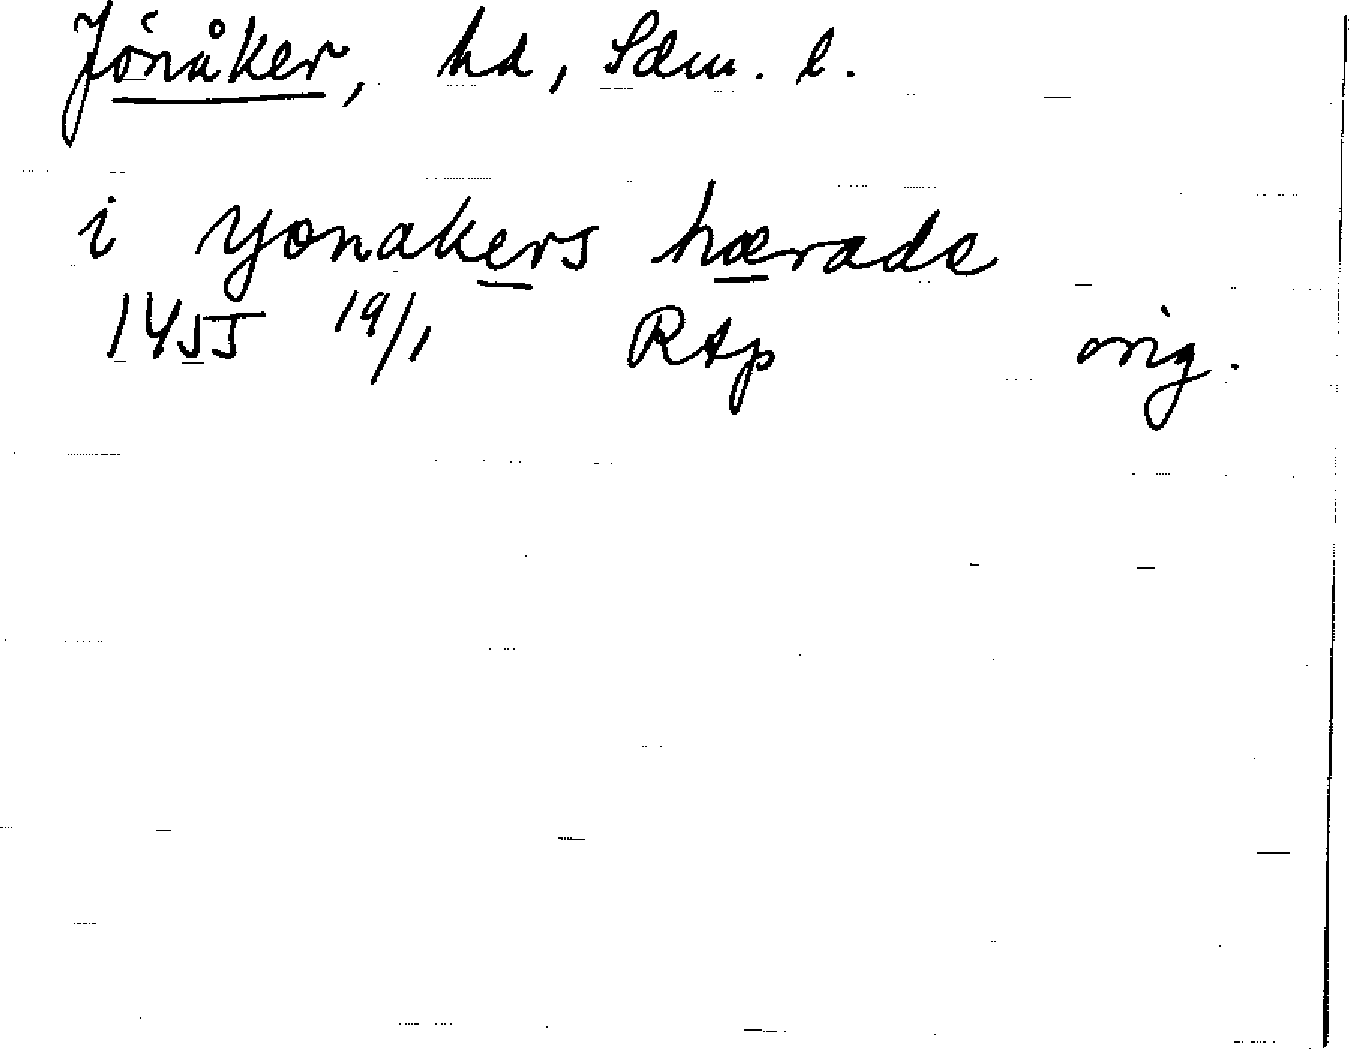 Jönåker, hd, Södm. l.
i yonakers hærade
1455 19/1 RAp orig.